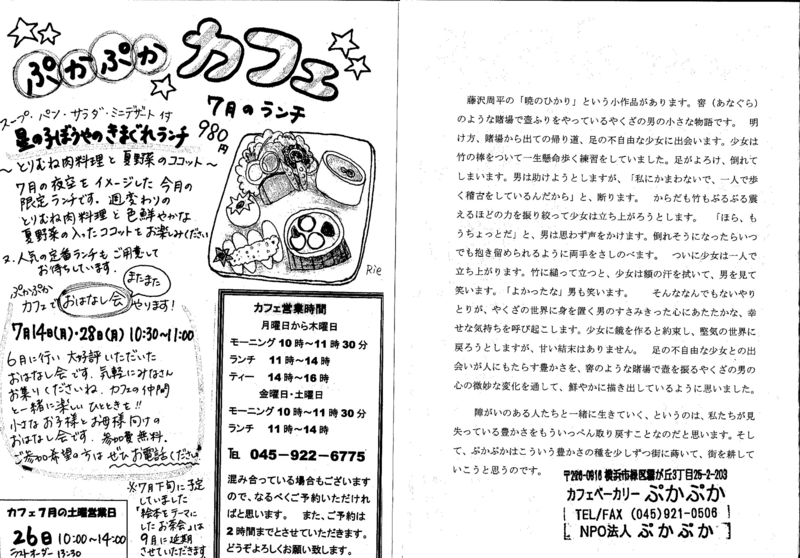 ぷかぷか カフェ
7月のランチ
980円
スープ・パン・サラダ・ミニデザート付
星の子ぼうやのきまぐれランチ
～とりむね肉料理と夏野菜のココット～
7月の夜空をイメージした今月の
限定ランチです。週変わりの
とりむね肉料理と色鮮やかな
夏野菜の入ったココットをお楽しみください
又、人気の定番ランチもご用意して
お待ちしています。
Rie
ぷかぷか
カフェで おはなし会 またまた やります!
7月14日(月)・28日(月) 10:30～11:00
6月に行い大好評いただいた
おはなし会です。気軽にみなさん
お集りくださいね。カフェの仲間
と一緒に楽しいひとときを!!
小さなお子様とお母様向けの
おはなし会です。参加費無料。
ご参加希望の方はぜひお電話ください
カフェ7月の土曜営業日
26日 10:00～14:00
ラストオーダー 13:30
※7月下旬に予定
していました
「絵本をテーマに
したお茶会」は
9月に延期
させていただきます
カフェ営業時間
月曜日から木曜日
モーニング 10時～11時30分
ランチ 11時～14時
ティー 14時～16時
金曜日・土曜日
モーニング 10時～11時30分
ランチ 11時～14時
℡ 045-922-6775
混み合っている場合もございます
ので、なるべくご予約いただけれ
ばと思います。 また、ご予約は
2時間までとさせていただきます。
どうぞよろしくお願い致します。
藤沢周平の「暁のひかり」という小作品があります。窖（あなぐら）
のような賭場で壺ふりをやっているやくざの男の小さな物語です。 明
け方、賭場から出ての帰り道、足の不自由な少女に出会います。少女は
竹の棒をついて一生懸命歩く練習をしていました。足がよろけ、倒れて
しまいます。男は助けようとしますが、「私にかまわないで、一人で歩
く稽古をしているんだから」と、断ります。 からだも竹もぶるぶる震
えるほどの力を振り絞って少女は立ち上がろうとします。 「ほら、も
うちょっとだ」と、男は思わず声をかけます。倒れそうになったらいつ
でも抱き留められるように両手をさしのべます。 ついに少女は一人で
立ち上がります。竹に縋って立つと、少女は額の汗を拭いて、男を見て
笑います。「よかったな」男も笑います。 そんななんでもないやり
とりが、やくざの世界に身を置く男のすさみきった心にあたたかな、幸
せな気持ちを呼び起こします。少女に鏡を作ると約束し、堅気の世界に
戻ろうとしますが、甘い結末はありません。 足の不自由な少女との出
会いが人にもたらす豊かさを、窖のような賭場で壺を振るやくざの男の
心の微妙な変化を通して、鮮やかに描き出しているように思いました。
障がいのある人たちと一緒に生きていく、というのは、私たちが見
失っている豊かさをもういっぺん取り戻すことなのだと思います。そし
て、ぷかぷかはこういう豊かさの種を少しずつ街に蒔いて、街を耕して
いこうと思うのです。
〒226-0016 横浜市緑区霧が丘3丁目25-2-203
カフェベーカリー ぷかぷか
TEL/FAX (045)921-0506
NPO法人 ぷかぷか